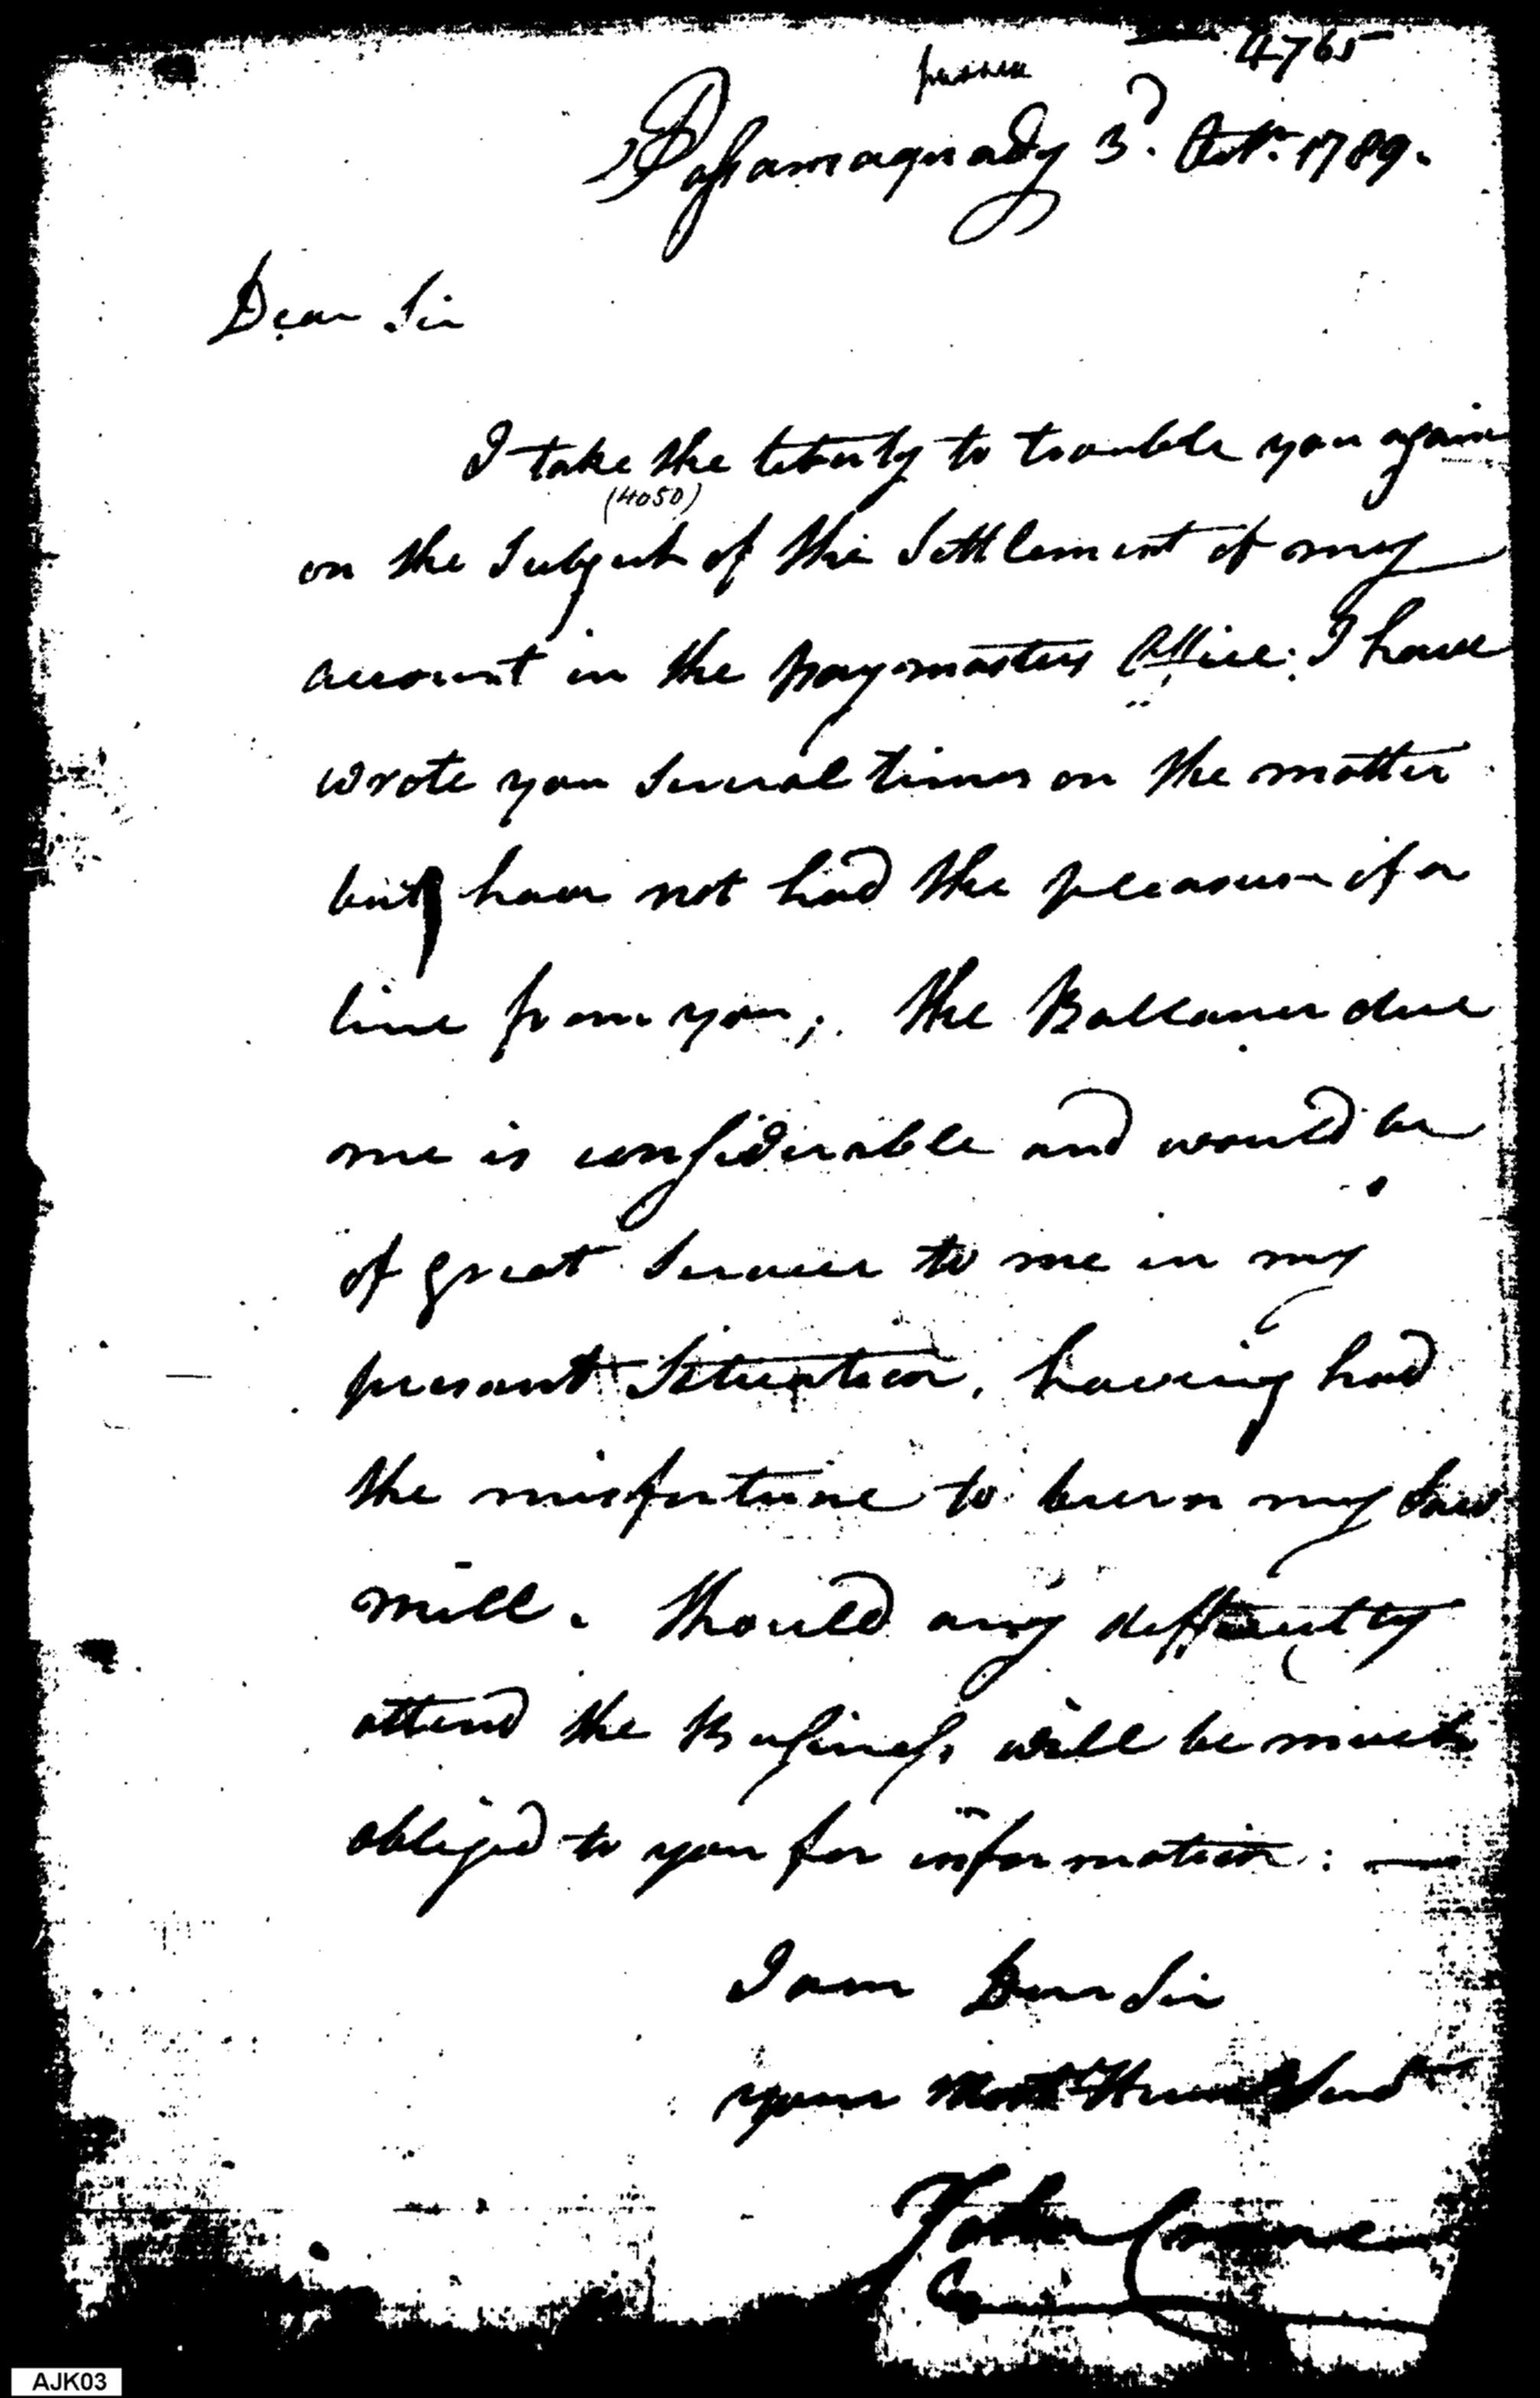 4765
Passamaquady 3d. Octr. 1789.
Dear Sir
I take the liberty to trouble you again
(4050)
on the Subject of the Settlement of my
account in the Paymasters Office. I have
wrote you Several times on the matter
but have not had the pleasure of a
line from you; the Ballance due
me is considerable and would be
of great Service to me in my
present Situation, having had
the misfortune to burn my Saw
mill. Should any difficulty
attend the Business will be much
obliged to you for information: —
I am Dear Sir
your most Humbl Servt
John Crane
AJK03